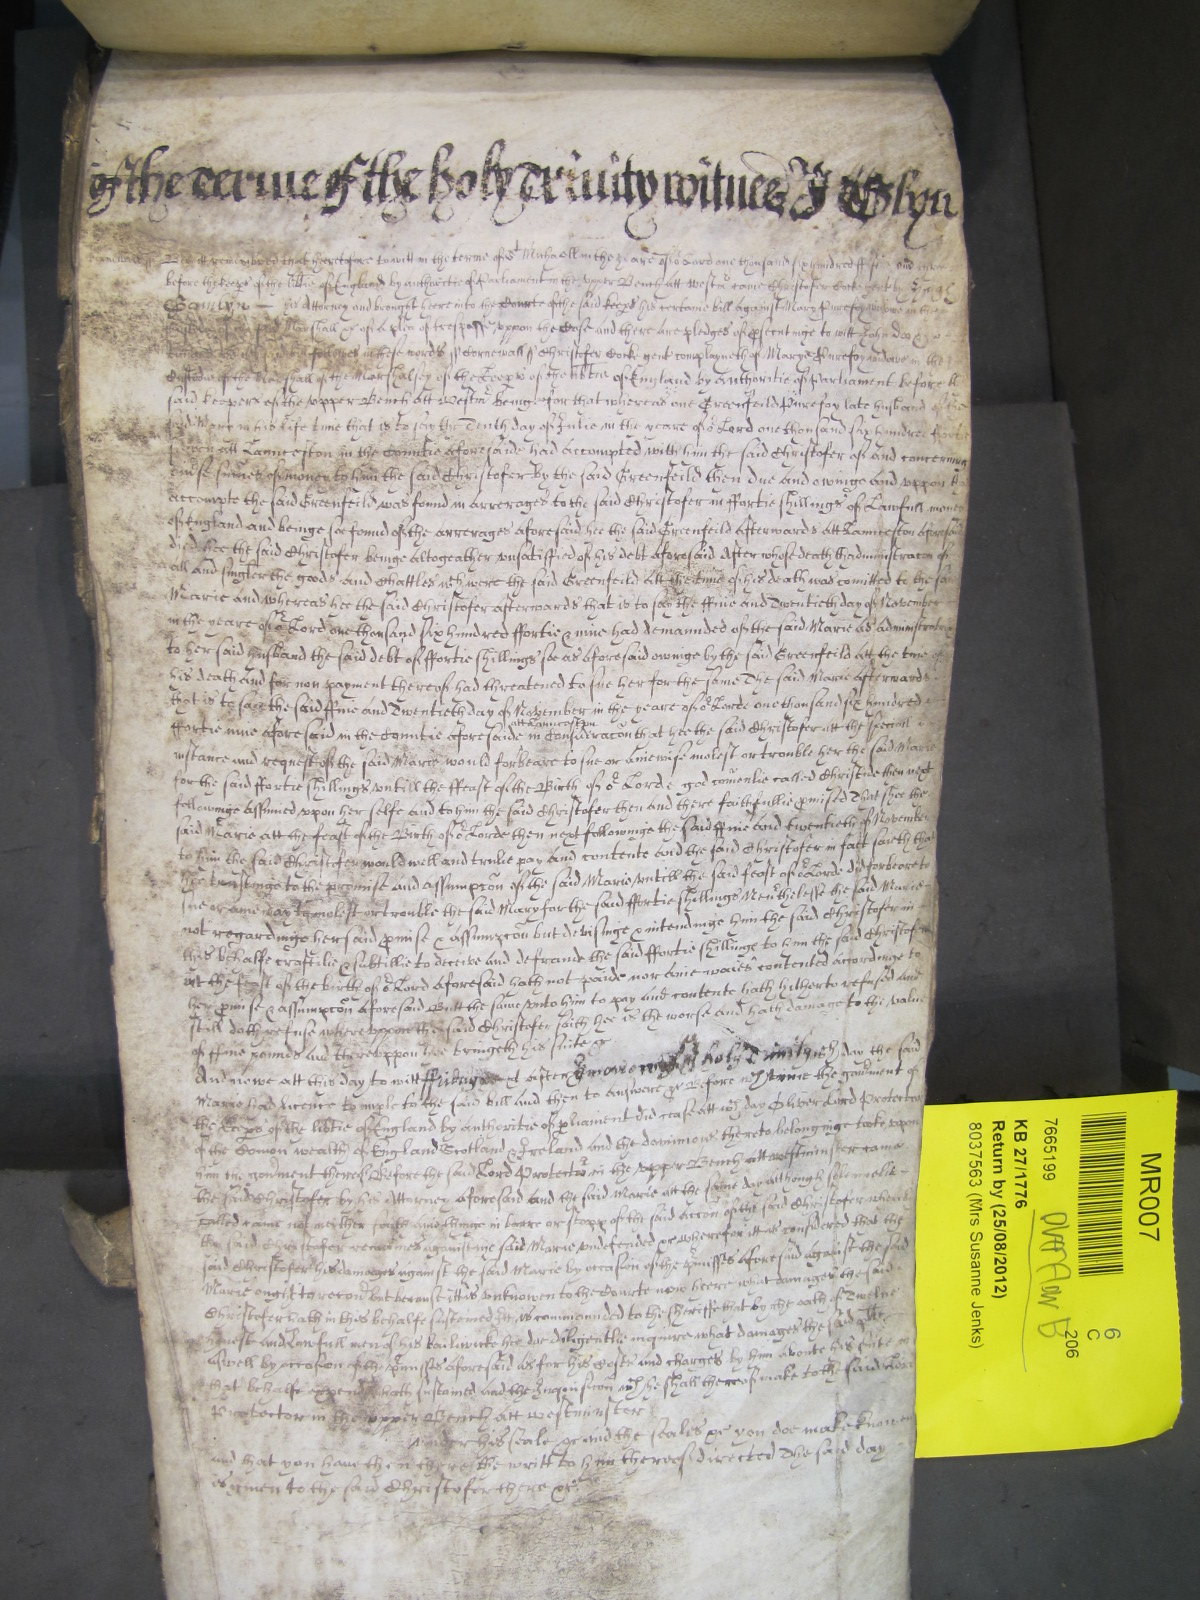 of the terme of the holy Trinity witnes J Glyn
Bee it remembred that heretofore to witt in the terme of St Michaell in the yeare of or Lord one thousand six hundred fiftie and three
before the keeps of the libtie of England by authoritie of Parliament in the upper Bench att Westmr came Christofer Cock gent by Hugh
his Attorney and brought heere into the Courte of the said keeps his certaine bill against Mary Purefoy widowe in the
Marshall &c of a plea of trespasse uppon the Case and there are pledges of psecutinge to witt John Doe
in these words ss Cornewall ss Christofer Cock gent complayneth of Marye Purefoy widowe in the
Custodie of the Marshall of the Marshalsey of the keeps of the libtie of England by authoritie of Parliament before the
said keepers of the upper Bench att Westmr beinge for that whereas one Greenfeild Purefoy late husband of the
said Mary in his life time that is to say the Tenth day of Julie in the yeare of or Lord one thousand six hundred fortie
att Lannceston in the Countie aforesaide had accompted with him the said Christofer of and concerning
divse sumes of money to him the said Christofer by the said Greenfeild then due and owinge and uppon the
accompte the said Greenfeild was found in arrerages to the said Christofer in ffortie shillings of Lawfull money
of England and beinge soe found of the arrerages aforesaid hee the said Greenfeild afterwards att Lannceston aforesaid
died hee the said Christofer beinge altogeather unsatisfied of his debt aforesaid after whose death thadministracon of
all and singler the goods and chattles wch were the said Greenfeild att the time of his death was comitted to the said
Marie and whereas hee the said Christofer afterwards that is to say the ffive and Twentieth day of November
in the yeare of or Lord one thousand six hundred ffortie & nine had demannded of the said Marie as administratrix
to her said husband the said debt of ffortie shillings soe as aforesaid owinge by the said Greenfeild att the time of
his death and for non payment thereof had threatened to sue her for the same The said Marie afterwards
that is to saie the said ffive and Twentieth day of November in the yeare of or Lorde one thousand six hundred
att Lanncestn
ffortie nine aforesaid in the Countie aforesaide in Consideracon that hee the said Christofer att the speciall
instance and request of the said Marie would forbeare to sue or aniewise molest or trouble her the said Marie
for the said ffortie shillings untill the ffeast of the Birth of or Lorde god comonlie called Christide then next
followinge assumed uppon her selfe and to him the said Christofer then and there faithfullie pmised That shee the
said Marie att the feast of the Birth of or Lorde then next followinge the said ffive and twentieth of November
to him the said Christofer would well and trulie pay and contente and the said Christofer in fact saieth that
hee trustinge to the promise and assumpcon of the said Marie untill the said feast of or Lorde did forbeare to
sue or anie way to molest or trouble the said Mary for the said ffortie shillings Nevtheless the said Marie
not regardinge her said pmise & assumpcon but devisinge & intendinge him the said Christofer in
this behalfe craftilie & subtillie to deceive and defraude the said ffortie shillinge to him the said Christofer
att the feast of the birth of or Lord aforesaid hath not paide nor anie waies contented accordinge to
her pmise & assumpcon aforesaid Butt the same unto him to pay and contente hath hitherto refused and
still doth refuse whereuppon the said Christofer saith hee is the worse and hath damage to the value
of ffive pounds and thereuppon hee bringeth his suite &c
And nowe att this day to witt ffriday next after the morrowe of the holy Trinity untill wch day the said
Marie had licence to imple to the said bill and then to answere &c Before wch time the govment of
the keeps of the libtie of England by authoritie of pliament did cease att wch day Oliver Lord Protector
of the Comon wealth of England Scotland & Ireland and the dominions thereto belonginge tooke upon
him the govment thereof Before the said Lord Protector in the upper Bench att westminster came
the said Christofer by his Attorney aforesaid and the said Marie att the same day although solemnelie
called came not neither saith anie thinge in barre or stopp of the said accon of the said Christofer whereby
the said Christofer remaines against the said Marie undefended &c wherefore itt is considered that the
said Christofer his damages against the said Marie by occasion of the pmisses aforesaid against the said
Marie ought to recov but because itt is unknowen to the Courte nowe heere what damages the said
Christofer hath in this behalfe susteined It is commannded to the sheriffe that by the oath of Twelve
honest and lawfull men of his bailiwicke hee doe diligentlie inquire what damages the said
aswell by occasion of the pmisses aforesaid as for his Costs and charges by him aboute his suite in
that behalfe expended hath sustained and the Inquisicon wch he shall thereof make to the said Lord
Protector in the upper Bench att westminster
under his seale &c and the seales &c you doe make knowen
and that you have then there the writt to him thereof directed The said day
is given to the said Christofer there &c
MR007
6
C
206
7665199
KB 27/1776
Return by (25/08/2012)
8037563 (Mrs Susanne Jenks)